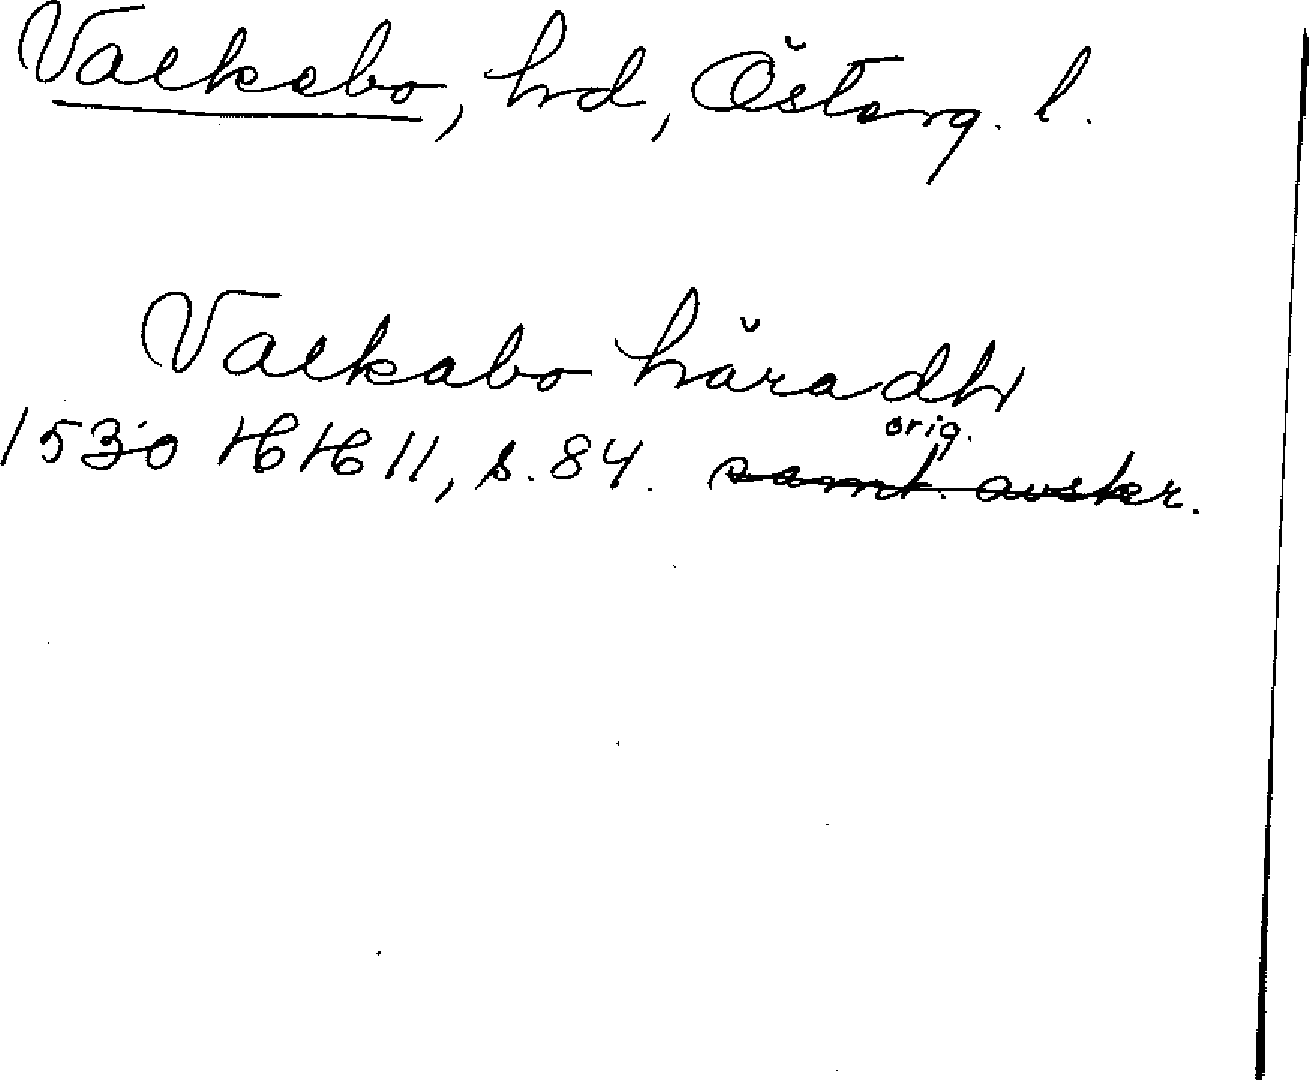 Valkebo, hd, Österg. l.
Valkabo häradh
1530 HH 11, s. 84. orig. samt. avskr.